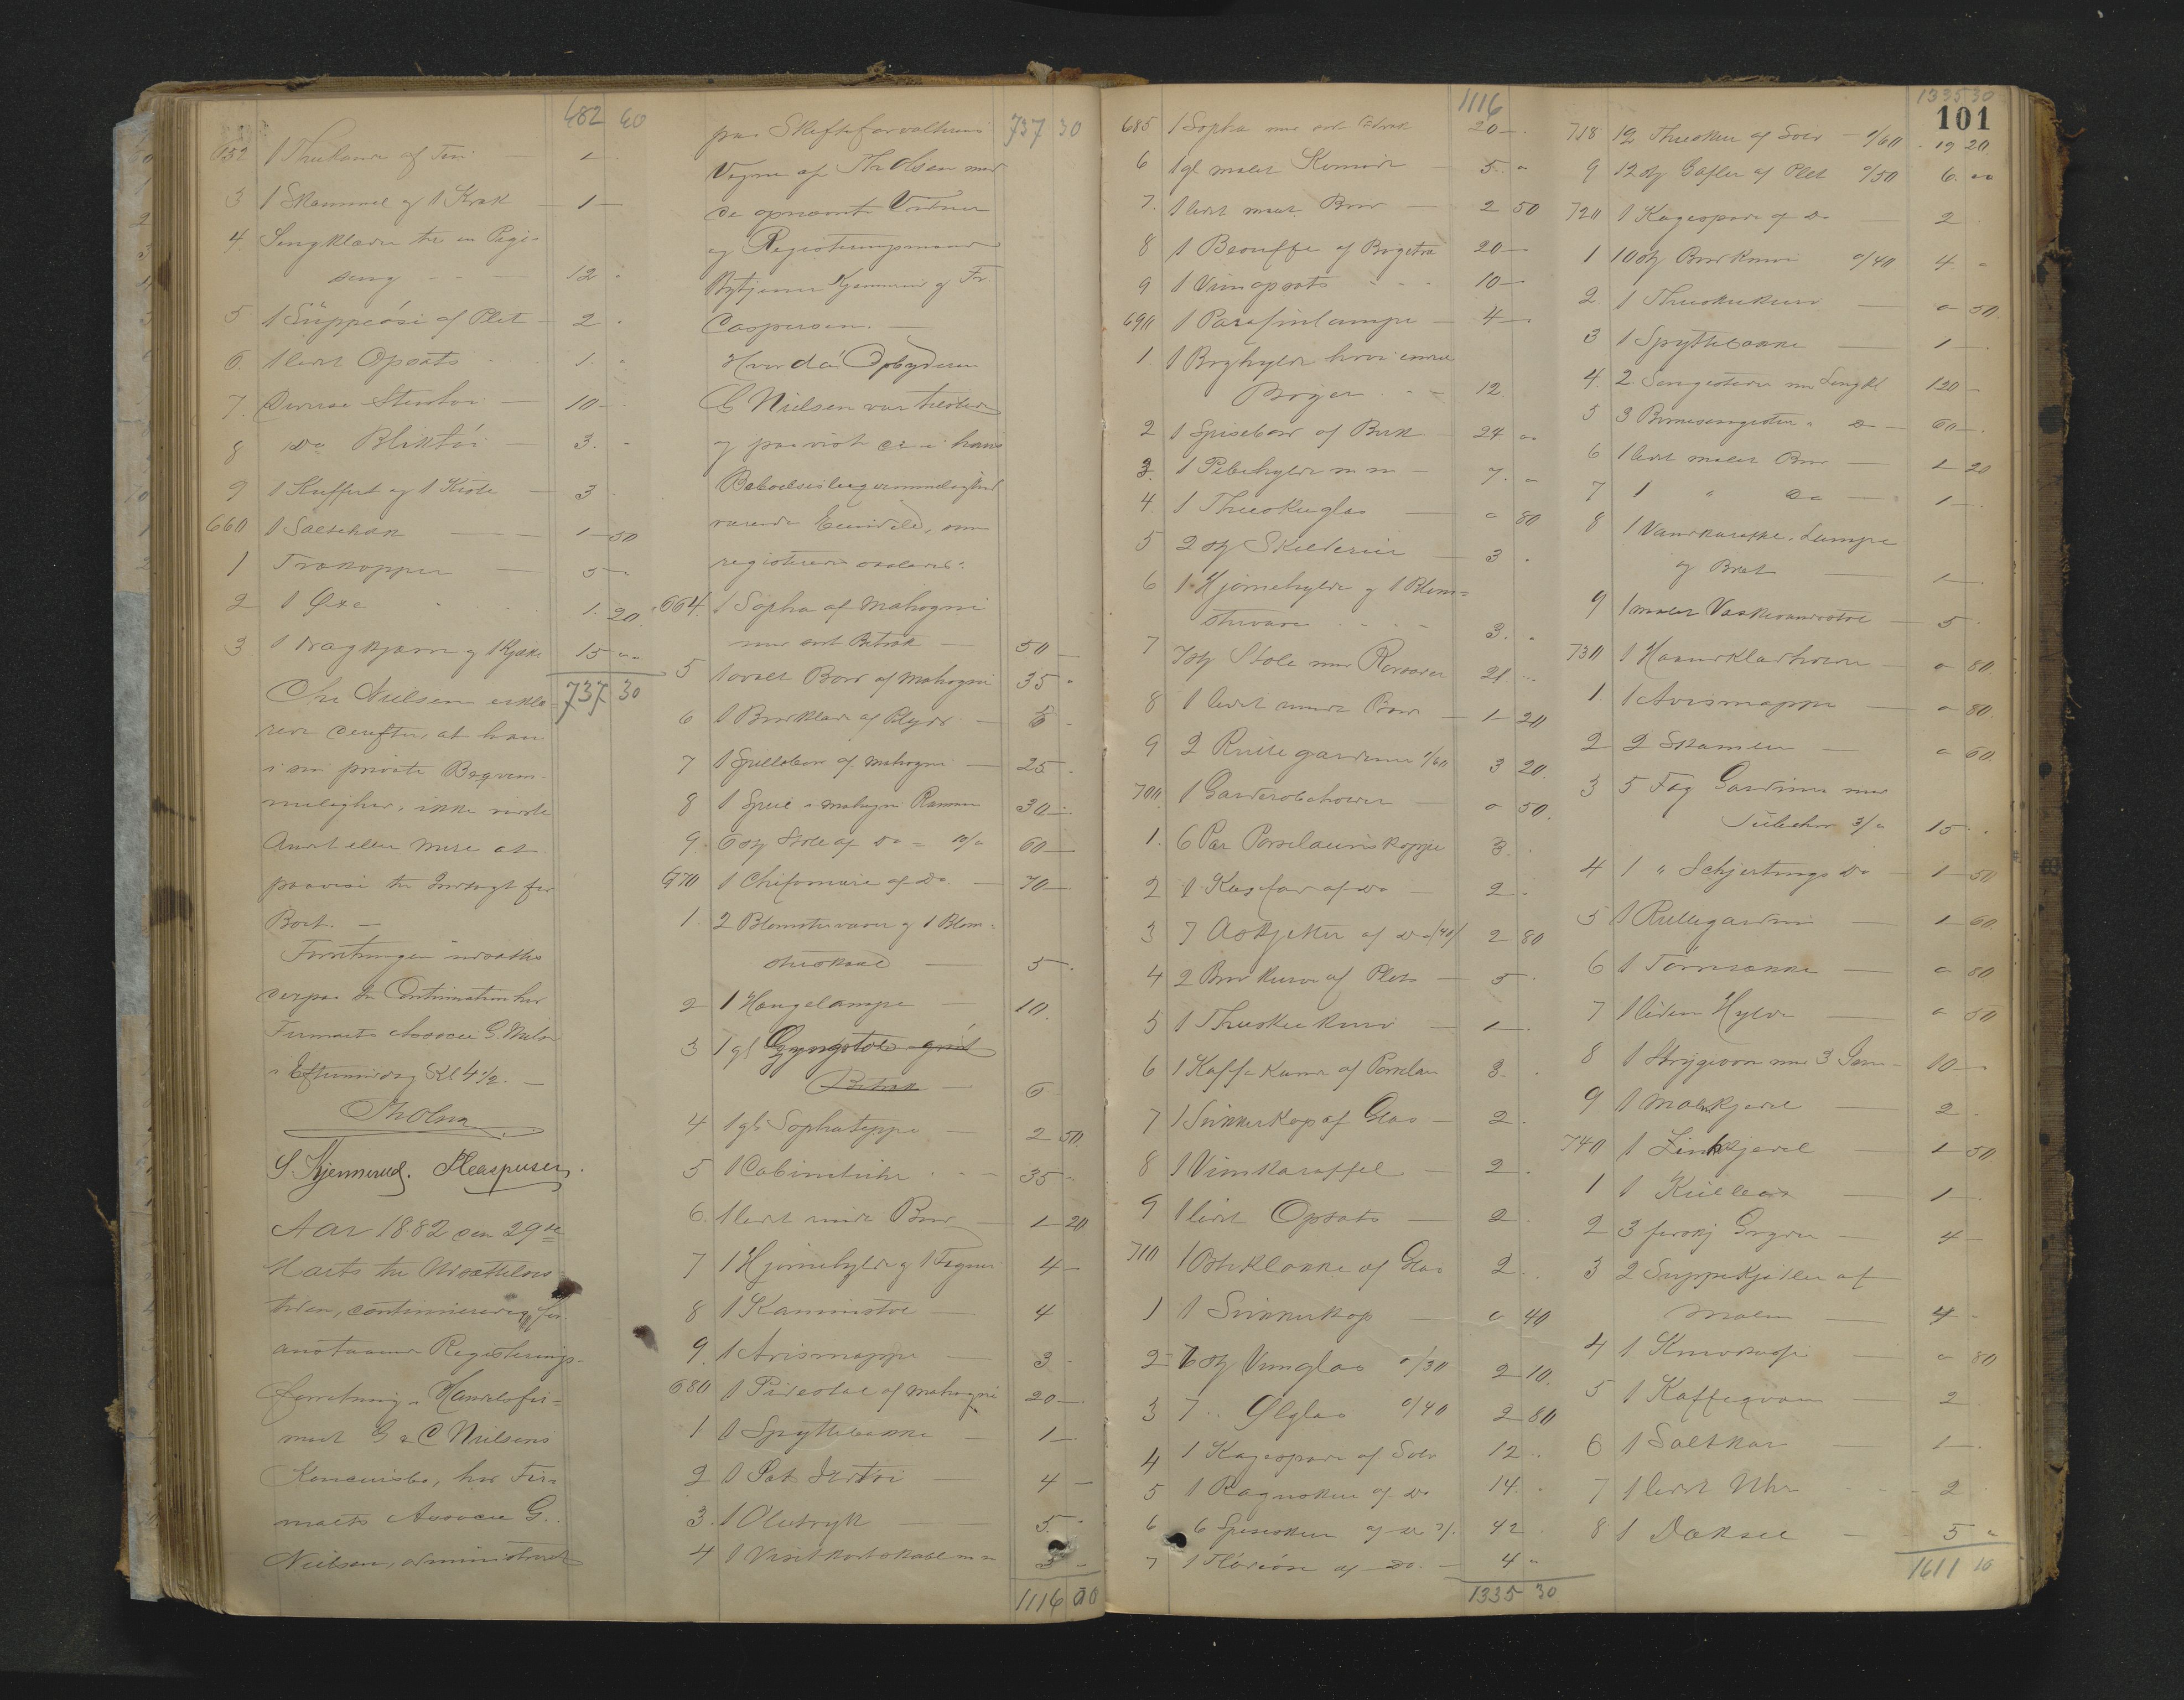 682 60
652 1 Thekande af Tin — 1 —
3 1 Skammel og 1 Krak — 1 —
4. Sengklæder til en Pige-
seng — 12 "
5 1 Suppeøse af Plet — 2 "
6. 1 lidet Opsats 1. "
7. Diverse Stentøi — 10 —
8 Do Bliktøi — 3. "
9 1 Kuffert og 1 Kiste — 3
660 1 Saltekar — 1 50
1 Trækopper — 5 "
2 1 Øxe 1. 20
3 1 Dragkjærre og 1 Kjælke 15 " "
737 30
Chr Nielsen erklæ-
rede derefter, at han
i sin private Beqvem-
melighed, ikke vidste
Andet eller mere at
paavise til Indtægt for
Boet. —
Forretningen udsattes
derpaa til Continuation hos
Firmaets Associe G. Nielsen
i Eftermiddag Kl 4 1/2. —
Th Olsen
S. Kjennerud. F Caspersen.
Aar 1882 den 29de
Marts til Udsættelses-
tiden, continueredes for-
anstaaende Registrerings-
forretning i Handelsfir-
maet G & C Nielsens
Konkursbo, hos Fir-
maets Associe G.
Nielsen, administreret
737 30
paa Skifteforvalterens
Vegne af Th Olsen med
de opnævnte Vidner
og Registreringsmænd
Bytjener Kjennerud og Fr.
Caspersen. —
Hvor da Opbyderen
G Nielsen var tilstede
og paaviste de i hans
Beboelsesbeqvemmelighed
værende Eiendele, som
registreredes saaledes:
664. 1 Sopha af Mahogni
med sort Betræk — 50 —
5 1 ovalt Bord af Mahogni 35 "
6 1 Bordklæde af Plyds — 5 "
7 1 Spillebord af Mahogni — 25 "
8 1 Speil i Mahogni Ramme 30 —
9. 6 stk Stole af Do — 10/" 60 —
670 1 Chifoniere af Do — 70 —
1. 2 Blomstervaser og 1 Blom-
sterskaal — 5 "
2 1 Hængelampe — 10.
3 1 gl Gyngestol grønt
Betræk — 6
4 1 gl Sophateppe — 2 50
5 1 Cabinetuhr — 35 "
6. 1 lidet rundt Bord — 1 20
7 1 Hjørnehylde og 1 Figur 4 —
8 1 Kaminstol — 4
9. 1 Avismappe — 3 "
680 1 Pidestal af Mahogni 20 —
1 1 Spyttebakke — 1 —
2 1 Sæt Ildtøi — 4 —
3. 1 Oletryk — 5. "
4 1 Visitkortskaal m m 3 —
1116 00
1116
685 1 Sopha med sort Betræk 20 —
6 1 gl malet Komode 5 "
7. 1 lidet malet Bord — 2 50
8 1 Beouffe af Birgetræ 20 —
9 1 Viinopsats 10 —
690 1 Parafinlampe — 4 —
1. 1 Boghylde hvori endeel
Bøger 12.
2 1 Spisebord af Birk 24 "
3. 1 Pibehylde m m — 7. "
4. 1 Theeskeglas — " 80
5 2 stk Skilderier — 3 "
6 1 Hjørnehylde og 1 Blom-
stervase 3. "
7 7 stk Stole med Rørsæder 21 "
8 1 lidet rundt Bord — 1 20
9 2 Rullegardiner 1/60 3 20
700 1 Garderobeholder — " 50
1. 6 Par Porselainskopper 3
2 1 Kagefad af Do — 2 "
3 7 Asjetter af Do /40/ 2 80
4 2 Brødkurve af Plet — 5
5 1 Theeskekurv — 1 —
6 1 Kaffekande af Porselan 3.
7 1 Sukkerkop af Glas — 2
8 1 Vinkaraffel — 2
9 1 lidet Opsats — 2
710 1 Osteklokke af Glas 2
1 1 Sukkerkop — " 40
2 7 stk Vinglas "/30 2 10
3 7 " Ølglas "/40 2 80
4 1 Kagespade af Sølv 12 "
5 1 Raguske af Do 14 "
6 6 Spiseskeer af Do 7/" 42
7 1 Fløteøse af Do — 4 "
1335 30
1335 30
101
718 12 Theskeer af Sølv — "/60 19 20
9 12 stk Gafler af Plet "/50 6. " "
720 1 Kagespade af Do — 2
1 10 stk Bordknive "/40 4. "
2. 1 Theeskekurv — " 50
3 1 Spyttebakke — 1 —
4. 2 Sengesteder med Sengkl 120 —
5 3 Børnesengesteder " Do — 60 —
6 1 lidet malet Bord — 1 20
7 1 " Do — 1 —
8 1 Vandkaraffel, Lampe
og Bret — 1 —
9 1 malet Vaskevandsstol — 5
730 1 Haandklædholder — " 80
1. 1 Avismappe — " 80
2 2 Skamler — " 60
3 5 Fag Gardiner med
Tilbehør 3/" 15 "
4 1 " Schjertings Do — 1 50
5 1 Rullegardin — 1 60
6 1 Tørresnekke — " 80
7 1 liden Hylde — " 50
8 1 Strygeovn med 3 Jern 10 —
9 1 Malmkjedel — 2
740 1 Zinkkjedel — 1 50
1 1 Kulbox — 1 —
2 3 forskj Gryder — 4 —
3 2 Suppekjedler af
Malm — 4 "
4 1 Knivkasse — " 80
5 1 Kaffeqværn — 2
6 1 Saltkar — 1 —
7 1 lidet Uhr — 2
8 1 Dækseel — 5 "
1611 10